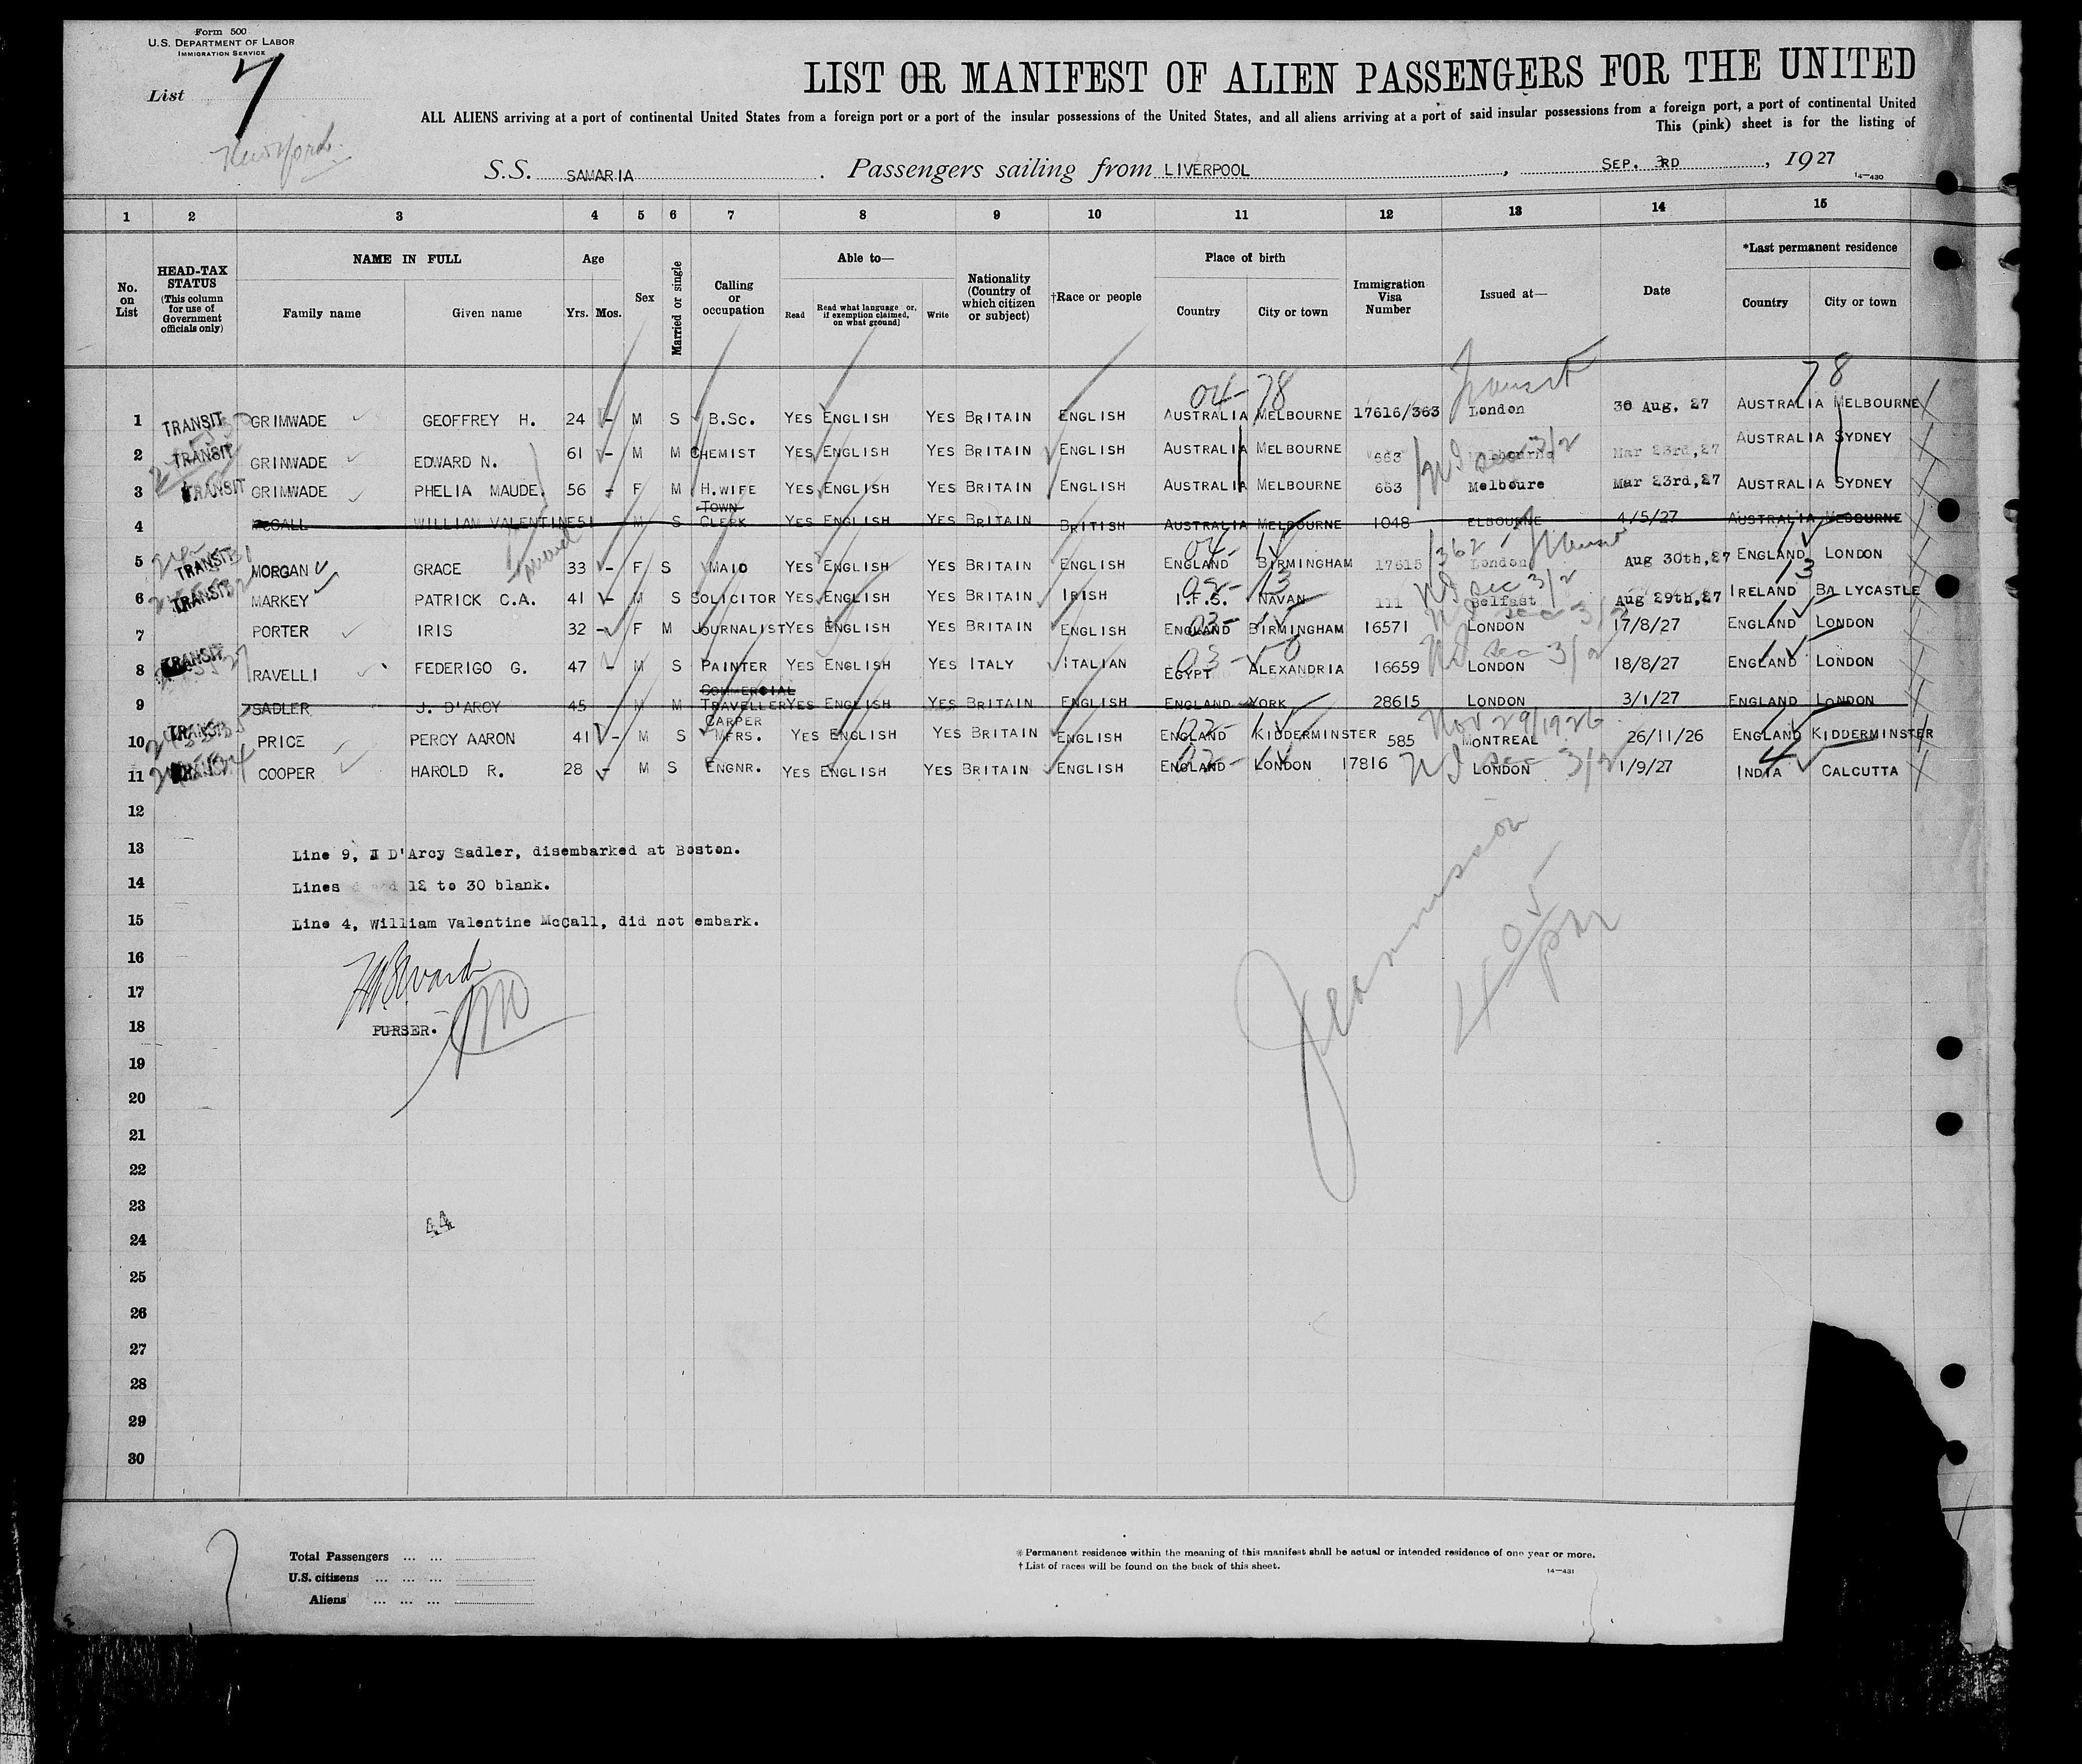 Form 500
U.S. DEPARTMENT OF LABOR
IMMIGRATION SERVICE
List 7
New York
LIST OR MANIFEST OF ALIEN PASSENGERS FOR THE UNITED
ALL ALIENS arriving at a port of continental United States from a foreign port or a port of the insular possessions of the United States, and all aliens arriving at a port of said insular possessions from a foreign port, a port of continental United
This (pink) sheet is for the listing of
S.S. SAMARIA. Passengers sailing from LIVERPOOL, SEP. 3RD, 1927
14-430
1 2 3 4 5 6 7 8 9 10 11 12 13 14 15
No. on List
HEAD-TAX STATUS (This column for use of Government officials only)
NAME IN FULL Family name Given name
Age Yrs. Mos.
Sex
Married or single
Calling or occupation
Able to— Read Read what language or, if exemption claimed, on what ground] Write
Nationality (Country of which citizen or subject)
†Race or people
Place of birth Country City or town
Immigration Visa Number
Issued at—
Date
*Last permanent residence Country City or town
04-78 Transit 78
1 TRANSIT GRIMWADE GEOFFREY H. 24 - M S B.SC. YES ENGLISH YES BRITAIN ENGLISH AUSTRALIA MELBOURNE 17616/363 London 30 Aug. 27 AUSTRALIA MELBOURNE
2 TRANSIT GRIMWADE EDWARD N. 61 - M M CHEMIST YES ENGLISH YES BRITAIN ENGLISH AUSTRALIA MELBOURNE 663 Melbourne Mar 23rd, 27 AUSTRALIA SYDNEY
3 TRANSIT GRIMWADE PHELIA MAUDE. 56 - F M H.WIFE YES ENGLISH YES BRITAIN ENGLISH AUSTRALIA MELBOURNE 663 Melboure Mar 23rd, 27 AUSTRALIA SYDNEY
4 McCALL WILLIAM VALENTINE 51 - M S TOWN CLERK YES ENGLISH YES BRITAIN BRITISH AUSTRALIA MELBOURNE 1048 ELBOURNE 4/5/27 AUSTRALIA MEBOURNE
5 TRANSIT MORGAN GRACE 33 - F S MAID YES ENGLISH YES BRITAIN ENGLISH ENGLAND BIRMINGHAM 17615 /362 London Aug 30th, 27 ENGLAND LONDON
6 TRANSIT MARKEY PATRICK C.A. 41 - M S SOLICITOR YES ENGLISH YES BRITAIN IRISH I.F.S. NAVAN 111 Belfast Aug 29th, 27 IRELAND BALLYCASTLE
7 PORTER IRIS 32 - F M JOURNALIST YES ENGLISH YES BRITAIN ENGLISH ENGLAND BIRMINGHAM 16571 LONDON 17/8/27 ENGLAND LONDON
8 TRANSIT RAVELLI FEDERIGO G. 47 - M S PAINTER YES ENGLISH YES ITALY ITALIAN EGYPT ALEXANDRIA 16659 LONDON 18/8/27 ENGLAND LONDON
9 SADLER J. D'ARCY 45 - M M COMMERCIAL TRAVELLER YES ENGLISH YES BRITAIN ENGLISH ENGLAND YORK 28615 LONDON 3/1/27 ENGLAND LONDON
Nov 29/1926
10 TRANSIT PRICE PERCY AARON 41 - M S CARPER MFRS. YES ENGLISH YES BRITAIN ENGLISH ENGLAND KIDDERMINSTER 585 MONTREAL 26/11/26 ENGLAND KIDDERMINSTER
11 TRANSIT COOPER HAROLD R. 28 - M S ENGNR. YES ENGLISH YES BRITAIN ENGLISH ENGLAND LONDON 17816 LONDON 1/9/27 INDIA CALCUTTA
12
13 Line 9, J D'Arcy Sadler, disembarked at Boston.
14 Lines 12 to 30 blank.
15 Line 4, William Valentine McCall, did not embark.
16
17
18 PURSER.
19
20
21
22
23
44
24
25
26
27
28
29
30
Total Passengers ... ...
U.S. citizens ... ... ...
Aliens ... ... ...
*Permanent residence within the meaning of this manifest shall be actual or intended residence of one year or more.
†List of races will be found on the back of this sheet.
14-431